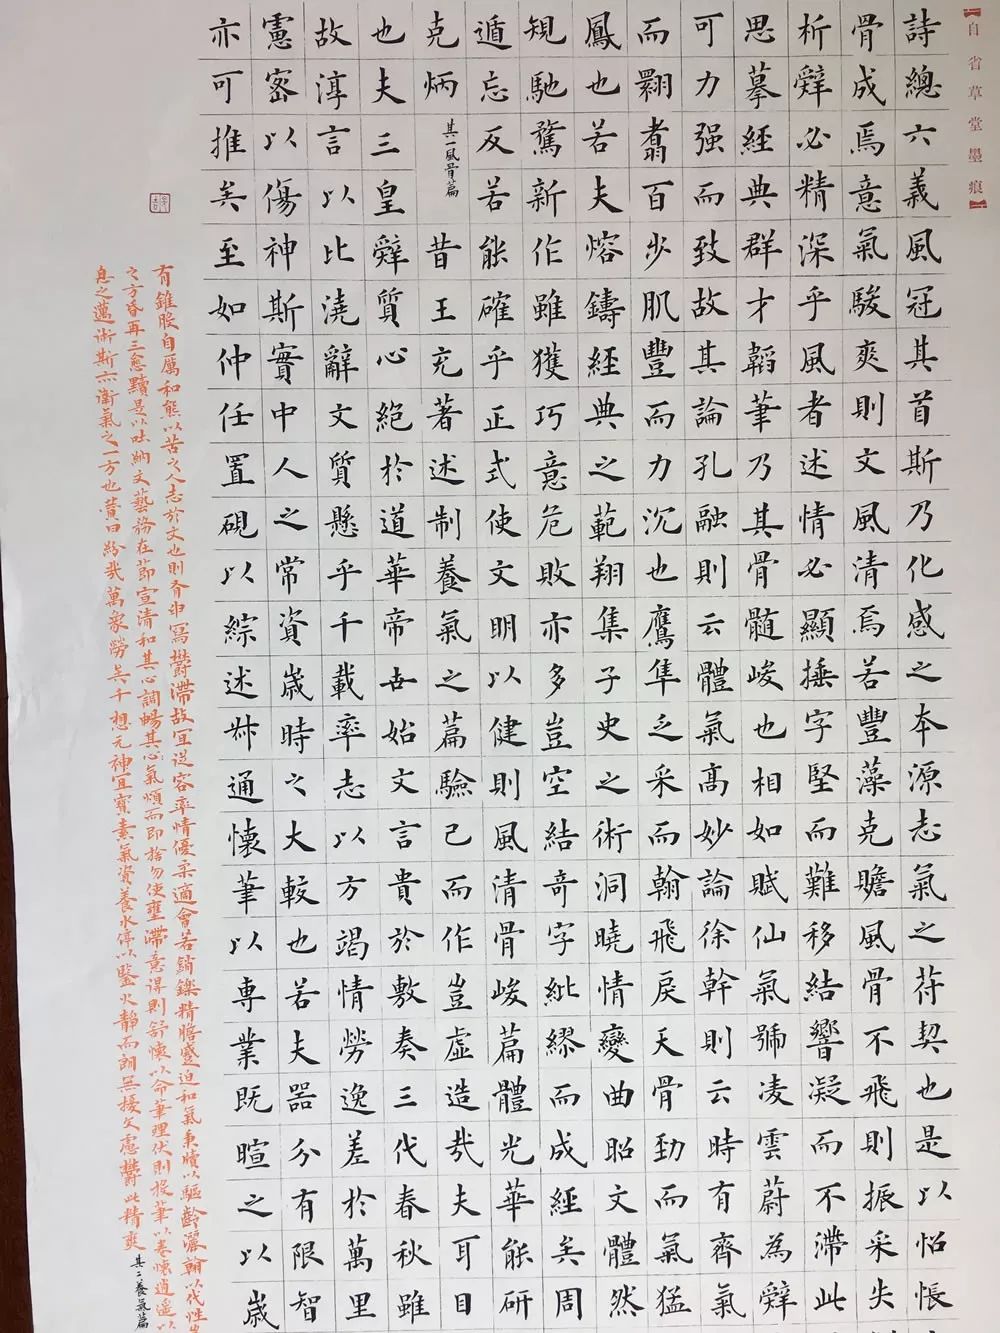 【自省草堂墨痕】
詩總六義風冠其首斯乃化感之本源志氣之符契也是以怊悵
骨成焉意氣駿爽則文風清焉若豐藻克贍風骨不飛則振采失
析辭必精深乎風者述情必顯捶字堅而難移結響凝而不滯此
思摹經典群才韜筆乃其骨髓峻也相如賦仙氣號凌雲蔚為辭
可力强而致故其論孔融則云體氣高妙論徐幹則云時有齊氣
而翾翥百步肌豐而力沉也鷹隼乏采而翰飛戾天骨勁而氣猛
鳳也若夫熔鑄經典之範翔集子史之術洞曉情變曲昭文體然
規馳騖新作雖獲巧意危敗亦多豈空結奇字紕繆而成經矣周
遁忘反若能確乎正式使文明以健則風清骨峻篇體光華能研
克炳其一風骨篇昔王充著述制養氣之篇驗己而作豈虛造哉夫耳目
也夫三皇辭質心絕於道華帝世始文言貴於敷奏三代春秋雖
故淳言以比澆辭文質懸乎千載率志以方竭情勞逸差於萬里
慮密以傷神斯實中人之常資歲時之大較也若夫器分有限智
亦可推矣至如仲任置硯以綜述叔通懷筆以專業既暄之以歲
有錐股自厲和熊以苦之人志於文也則有申寫鬱滯故宜從容率情優柔適會若銷鑠精膽蹙迫和氣秉牘以驅齡灑翰以伐性
之方昏再三愈黷是以吐納文藝務在節宣清和其心調暢其心氣煩而即捨勿使壅滯意得則舒懷以命筆理伏則投筆以卷懷逍遙以
息之邁術斯亦衛氣之一方也贊曰紛哉萬象勞矣千想元神宜寶素氣資養水停以鑒火靜而朗無擾文慮鬱此精爽其二養氣篇